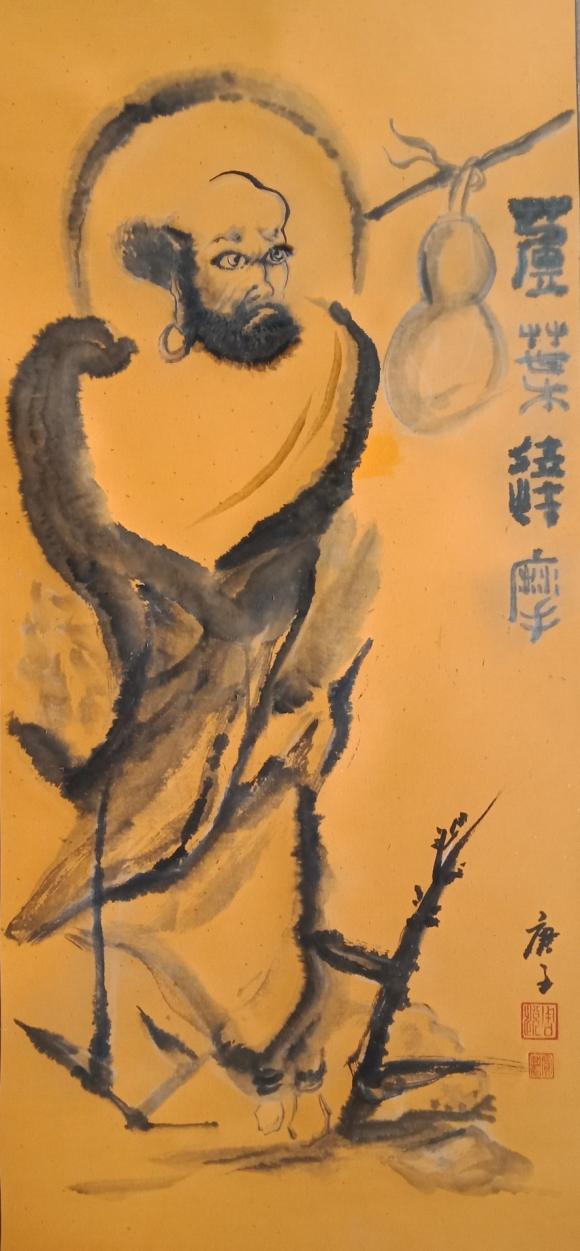 蘆葉達摩
庚子